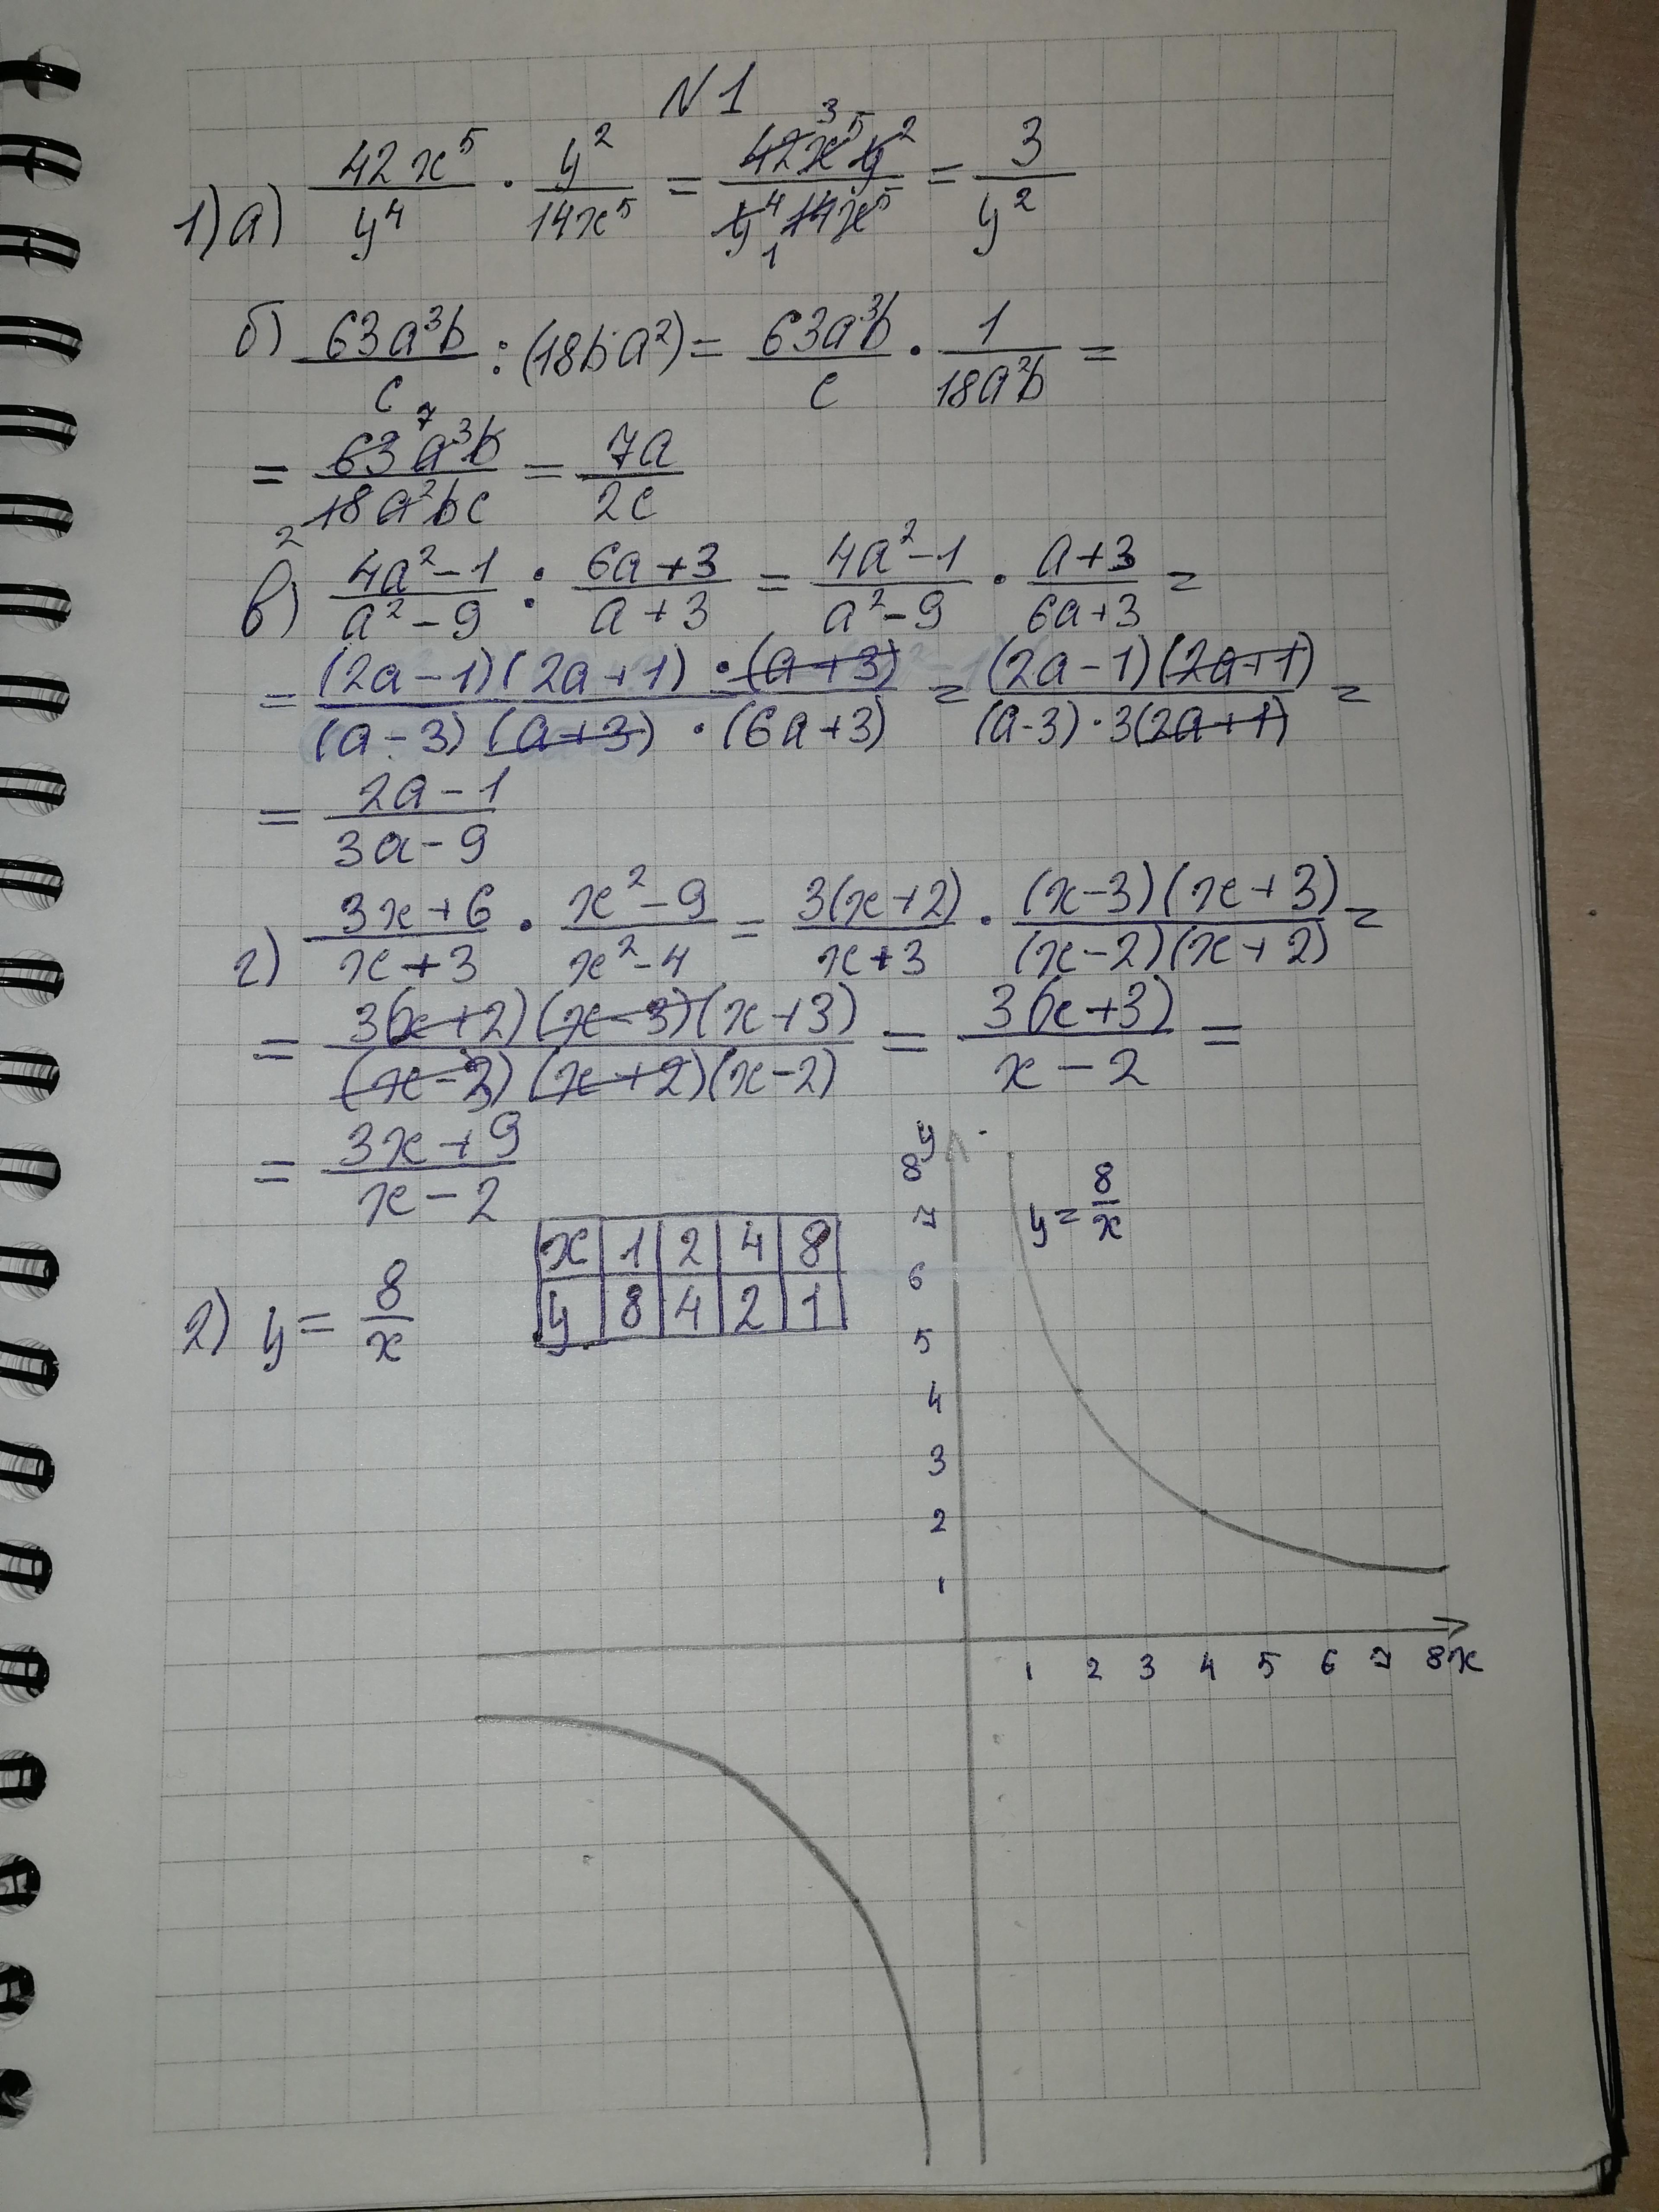 N1
1) а) 42x⁵/y⁴ · y²/14x⁵ = 42x⁵y²/y⁴14x⁵ = 3/y²
3
1
б) 63a³b/c : (18ba²) = 63a³b/c · 1/18a²b =
7
= 63a³b/18a²bc = 7a/2c
2
в) 4a²-1/a²-9 : 6a+3/a+3 = 4a²-1/a²-9 · a+3/6a+3 =
= (2a-1)(2a+1)·(a+3)/(a-3)(a+3)·(6a+3) = (2a-1)(2a+1)/(a-3)·3(2a+1) =
= 2a-1/3a-9
г) 3x+6/x+3 · x²-9/x²-4 = 3(x+2)/x+3 · (x-3)(x+3)/(x-2)(x+2) =
= 3(x+2)(x-3)(x+3)/(x-3)(x+2)(x-2) = 3(x+3)/x-2 =
= 3x+9/x-2
2) y = 8/x
x 1 2 4 8
y 8 4 2 1
y
8
7
6
5
4
3
2
1
y = 8/x
1 2 3 4 5 6 7 8 x